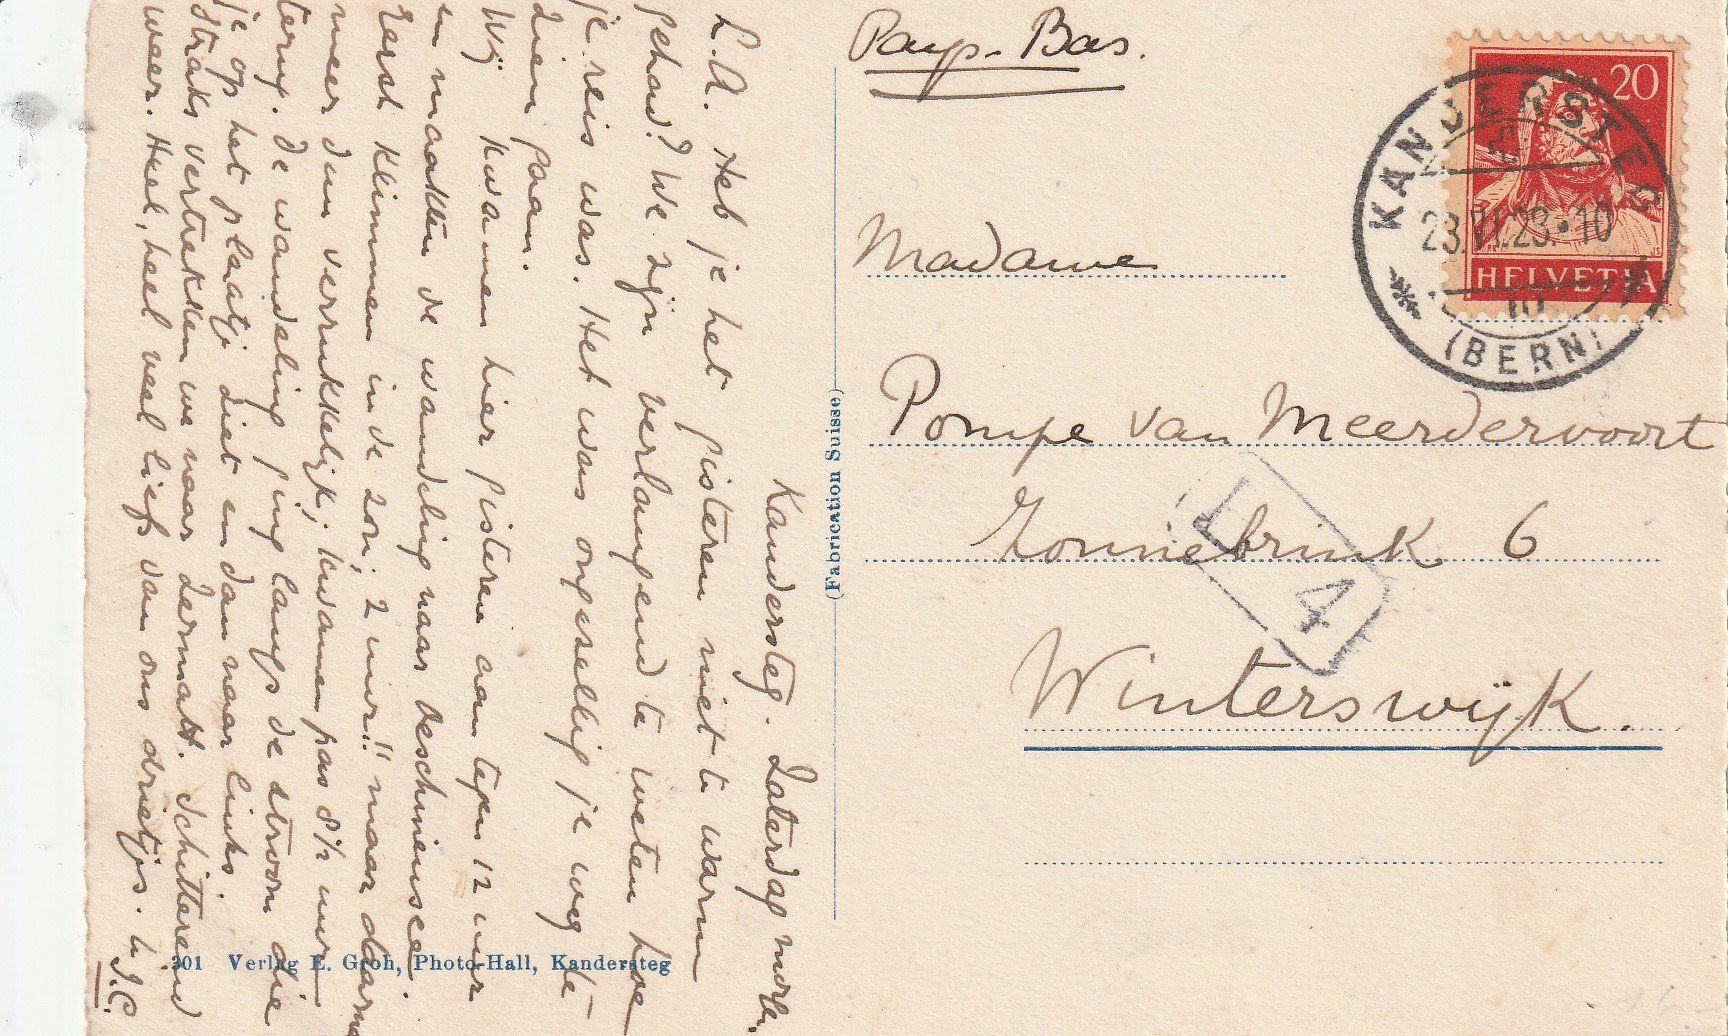 Kandersteg. Zaterdag morg.
L.A. Heb je het gisteren niet te warm
gehad? We zijn verlangend te weten hoe
je reis was. Het was ongezellig je weg te
zien gaan.
Wij kwamen hier gisteren aan tegen 12 uur
en maakten de wandeling naar Oeschinensee.
Eerst klimmen in de zon, 2 uur!! maar daarna
meer dan verrukkelijk; kwamen pas 8½ uur
terug. De wandeling ging langs de stroom die
je op het plaatje ziet en dan naar links.
Straks vertrekken we naar Zermatt. Schitterend
weer. Heel, heel veel liefs van ons drietjes. L.
J.C.
301 Verlag E. Groh, Photo-Hall, Kandersteg
(Fabrication Suisse)
Pays-Bas.
20
HELVETIA
KANDERSTEG
23.VI.23.-10
(BERN)
Madame
Pompe van Meerdervoort
Zonnebrink 6
Winterswijk.
4